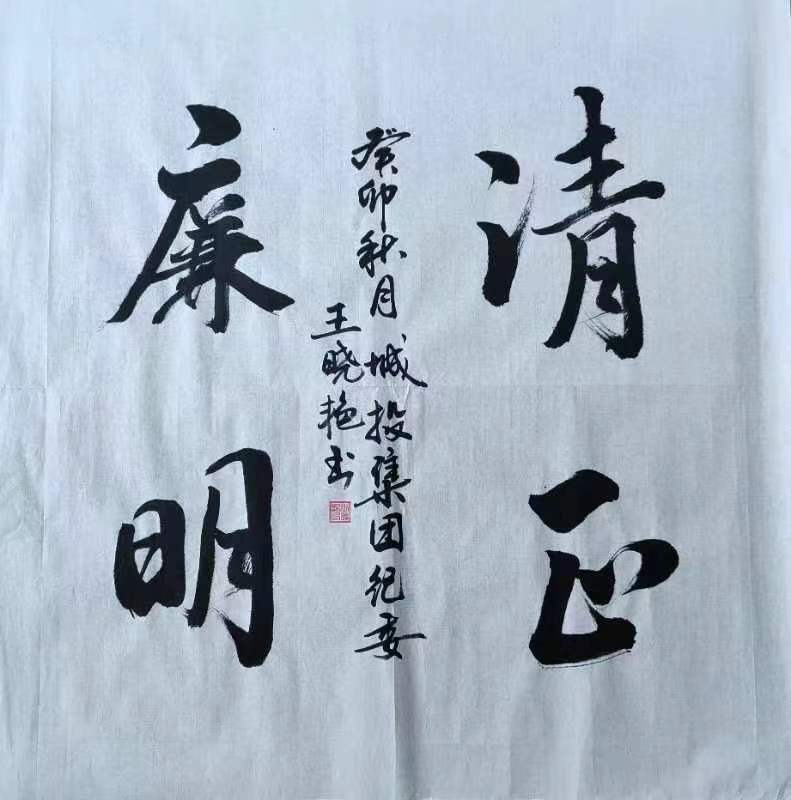 清正
廉明
癸卯秋月城投集团纪委
王晓艳书